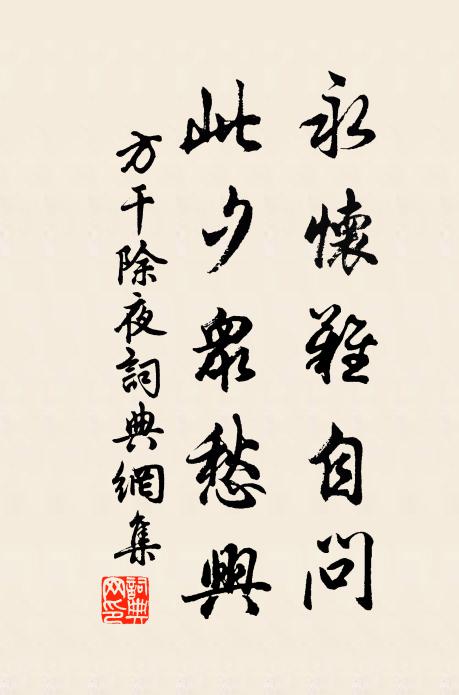 永懷難自問
此夕眾愁興
方干除夜詞典網集
詞典
网印